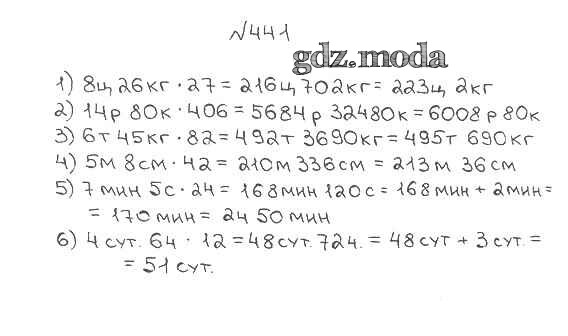 №441
gdz.moda
1) 8ц 26кг · 27 = 216ц 702кг = 223ц 2кг
2) 14р 80к · 406 = 5684р 32480к = 6008р 80к
3) 6т 45кг · 82 = 492т 3690кг = 495т 690кг
4) 5м 8см · 42 = 210м 336см = 213м 36см
5) 7мин 5с · 24 = 168мин 120с = 168мин + 2мин =
= 170мин = 2ч 50мин
6) 4сут. 6ч · 12 = 48сут. 72ч. = 48сут + 3сут. =
= 51сут.